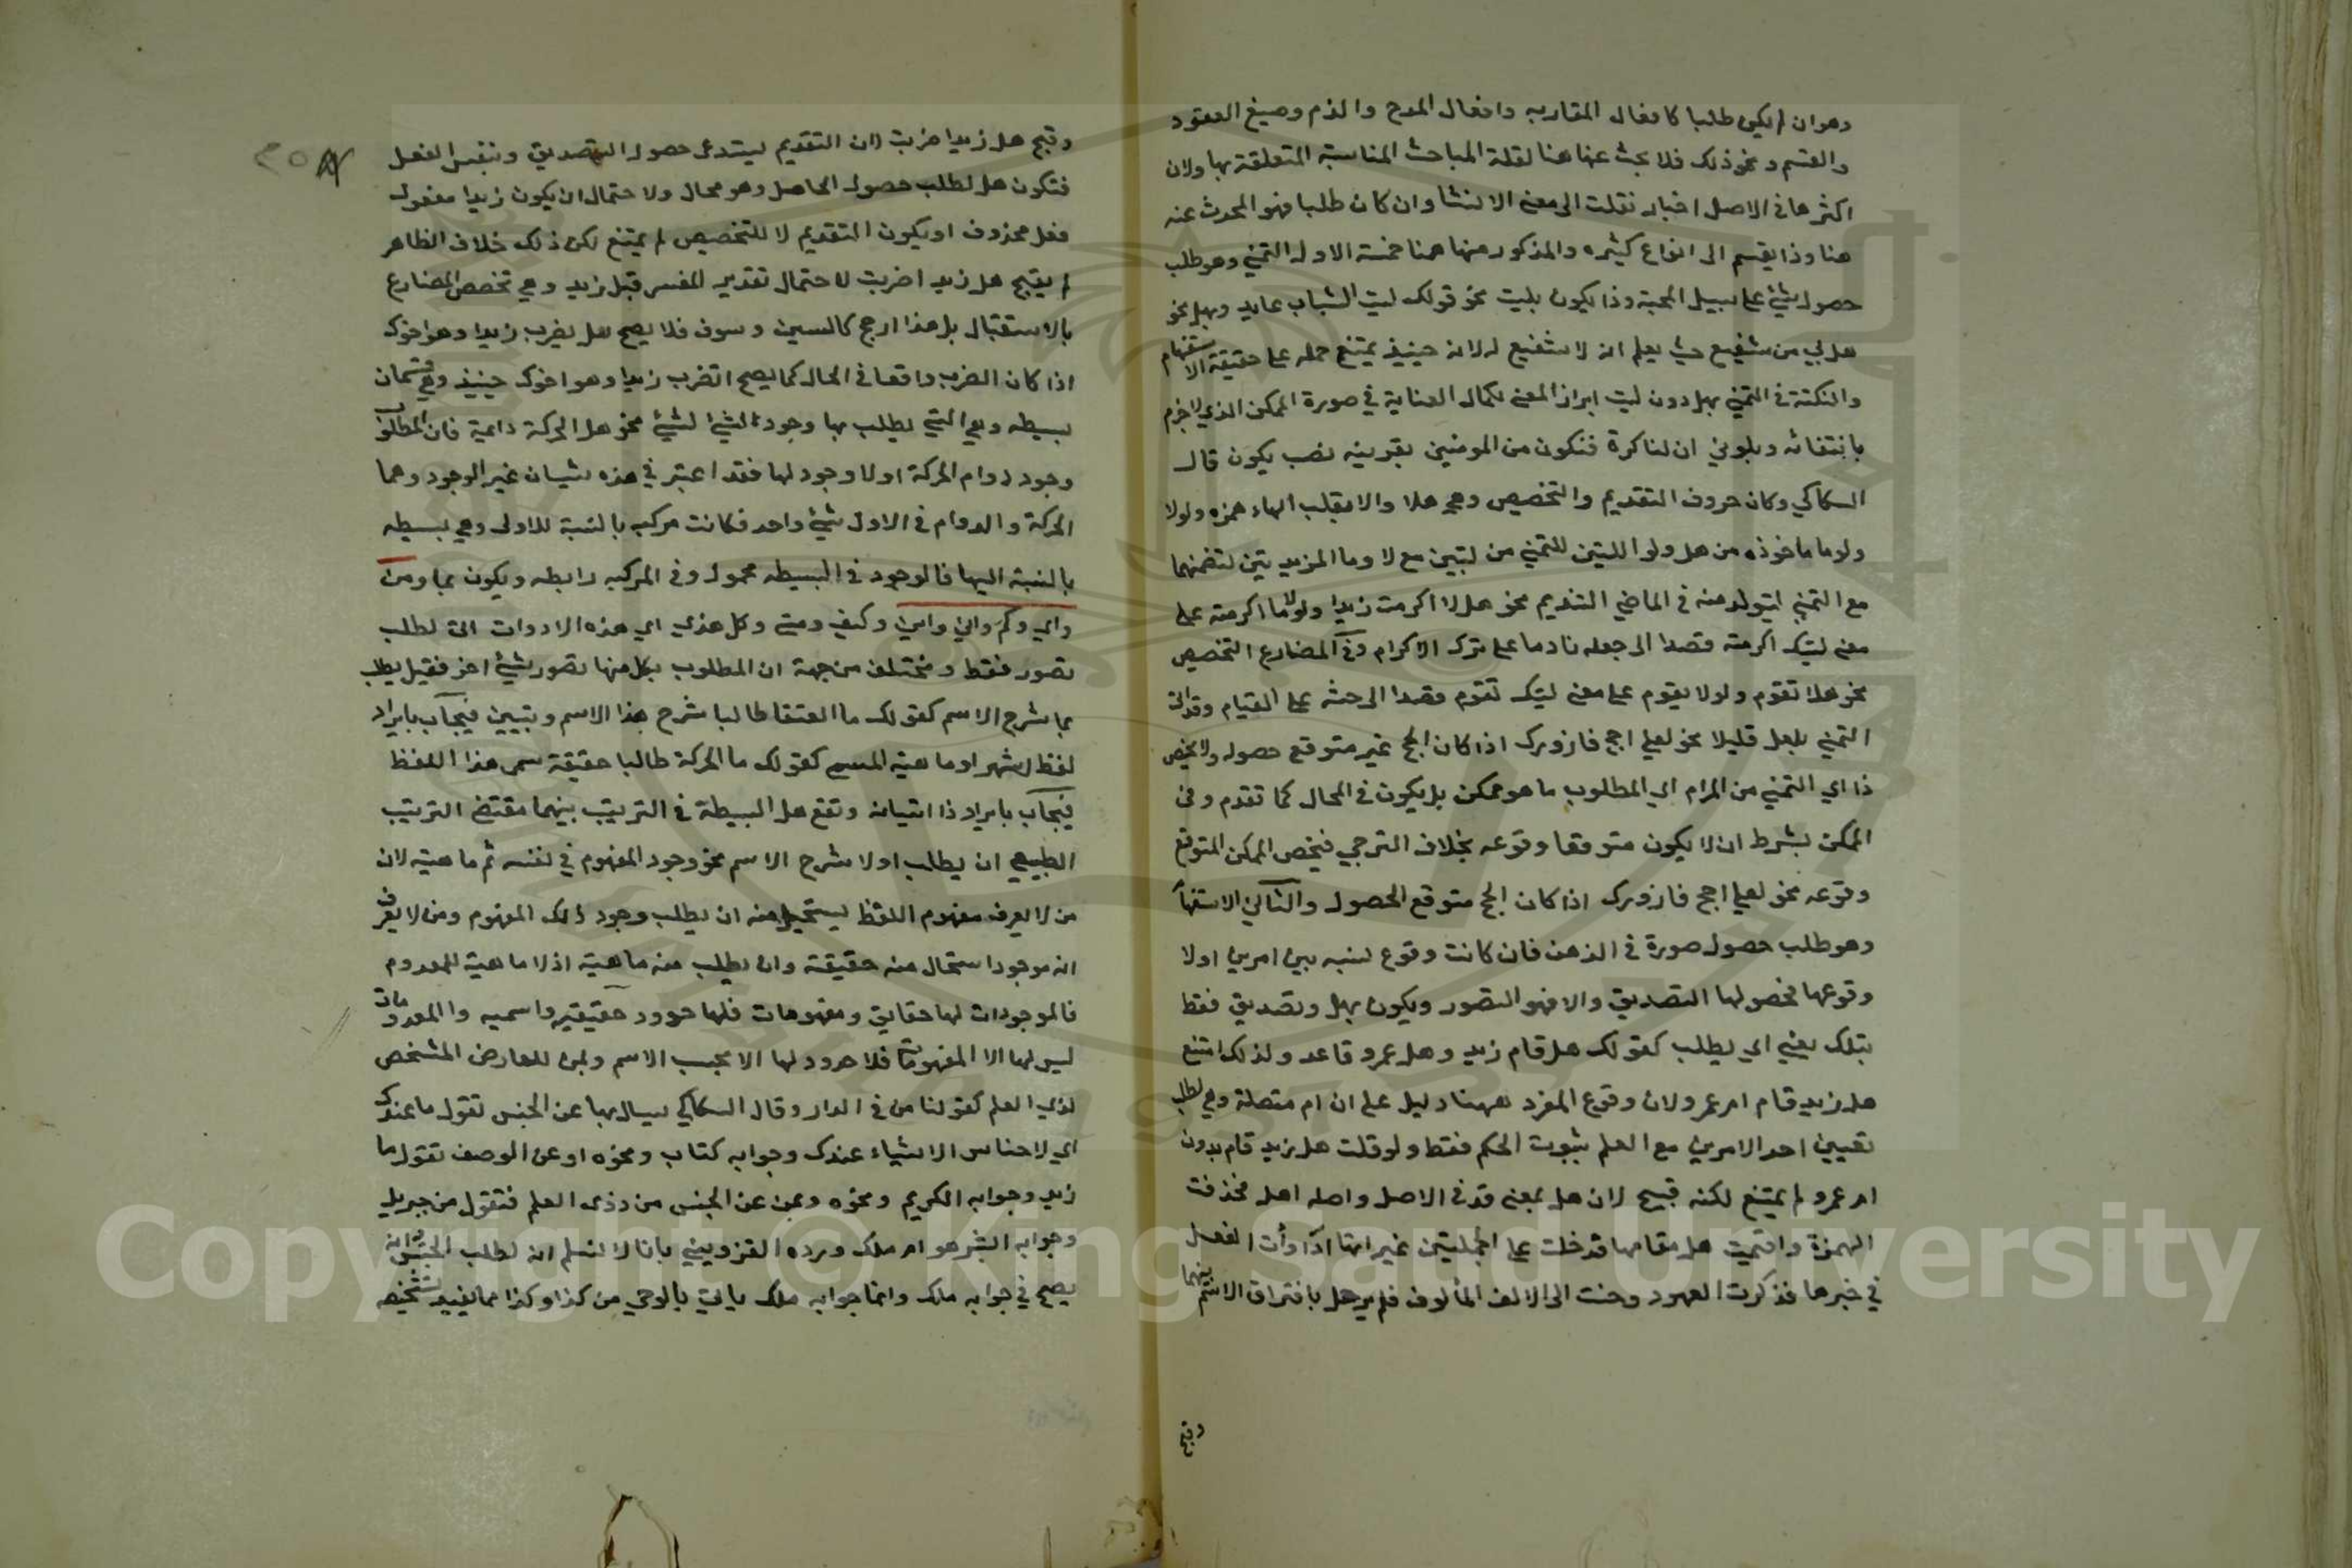 وهو ان لم يكن طلبا كافعال المقاربه وافعال المدح والذم وصيغ العقود
والقسم ونحو ذلك فلا بحث عنها هنا لقلة المباحث المناسبة المتعلقة بها ولان
اكثرها في الاصل اخبار نقلت الى معنى الانشا وان كان طلبا فهو المحدث عنه
هنا وذا يقسم الى انواع كثيره والمذكور منها هنا خمسة الاول التمني وهو طلب
حصول شئ على سبيل المحبة وذا يكون بليت نحو قولك ليت الشباب عايد وبهل نحو
هل لي من شفيع حيث يعلم ان لا شفيع له لانه حينيذ يمتنع حمله على حقيقة الاستفهام
والنكتة في التمني بهل دون ليت ابراز المعنى لكمال العناية في صورة الممكن الذي لا جزم
بانتفائه وبلو نحو ان لنا كرة فنكون من المومنين بقرينه نصب يكون قال
السكاكي وكان حروف التقديم والتخصيص وهي هلا والا بقلب الهاء همزه ولولا
ولوما ماخوذه من هل ولو اللتين للتمني من لتبين مع لا وما المزيدتين لتضمنهما
مع التمني ليتولد منه في الماضي التنديم نحو هلا اكرمت زيدا ولوما اكرمته على
معنى ليتك اكرمته قصدا الى جعله نادما على ترك الاكرام وفي المضارع التخصيص
نحو هلا تقوم ولولا يقوم على معنى ليتك تقوم قصدا الى حثه على القيام وقد اتى
التمني بلعل قليلا نحو لعلي احج فازورك اذا كان الحج غير متوقع حصوله ولا يخص
ذا اي التمني من المرام اي المطلوب ما هو ممكن بل يكون في المحال كما تقدم وفي
الممكن بشرط ان لا يكون متوقعا وقوعه بخلاف الترجي فيخص الممكن المتوقع
وقوعه نحو لعلي احج فازورك اذا كان الحج متوقع الحصول والثاني الاستفها
وهو طلب حصول صورة في الذهن فان كانت وقوع نسبه بين امرين اولا
وقوعها فحصولها التصديق والا فهو التصور ويكون بهل وتصديق فقط
بتلك يعني اي يطلب كقولك هل قام زيد وهل عمرو قاعد ولذلك امتنع
هل زيد قام ام عمرو لان وقوع المفرد ههنا دليل على ان ام متصلة وهي لطلب
تعيين احد الامرين مع العلم بثبوت الحكم فقط ولو قلت هل زيد قام بدون
ام عمرو لم يمتنع لكنه قبيح لان هل بمعنى قد في الاصل واصله اهل فحذفت
الهمزة واقيمت هل مقامها قد خلت على الجملتين غير انها اذا رأت الفعل
في خبرها فذكرت العهود وحنت الى الالف المألوف فلم يرض هل بافتراق الاسم بينهما
وقبح
وقبح هل زيدا ضربت لان التقديم يستدعى حصول التصديق وبنفس الفعل
فتكون هل لطلب حصول الحاصل وهو محال ولاحتمال ان يكون زيدا مفعول
فعل محذوف او يكون التقديم لا للتخصيص لم يمتنع لكن ذلك خلاف الظاهر
لم يقبح هل زيدا ضربت لاحتمال تقدير المفسر قبل زيد وهي تخصص المضارع
بالاستقبال بل هذا ارجح كالسين وسوف فلا يصح هل يضرب زيدا وهو اخوك
اذا كان الضرب واقعا في الحال كما يصح اتضرب زيدا وهو اخوك حينيذ وهي قسمان
بسيطه وهي التي يطلب بها وجود الشئ لشئ نحو هل الحركة دايمة فان المطلوب
وجود دوام الحركة اولا وجود لها فقد اعتبر في هذه شيان غير الوجود وهما
الحركة والدوام في الاول شئ واحد فكانت مركبه بالنسبة للاولى وهي بسيطه
بالنسبة اليها فالوجود في البسيطه محمول وفي المركبه رابطه ويكون بما ومن
واي وكم واني واين وكيف ومتى وكل هذي اي هذه الادوات اتى لطلب
تصور فقط ومختلف من جهة ان المطلوب بكل منها تصور شئ اخر فقيل يطلب
بما شرح الاسم كقولك ما العنقا طالبا شرح هذا الاسم وتبيين فيجاب بايراد
لفظ اشهر او ماهية المسمى كقولك ما الحركة طالبا حقيقة مسمى هذا اللفظ
فيجاب بايراد ذا اتيانه وتقع هل البسيطة في الترتيب بينهما مقتضى الترتيب
الطبيعي ان يطلب اولا شرح الاسم نحو وجود المفهوم في نفسه ثم ماهيته لان
من لا يعرف مفهوم اللفظ يستحيل منه ان يطلب وجود ذلك المفهوم ومن لا يعرف
انه موجود استحال منه حقيقة وان يطلب منه ماهيته اذ لا ماهية للمعدوم
فالموجودات لها حقايق ومفهومات فلها حدود حقيقيه واسميه والمعدومات
ليس لها الا المفهومات فلا حدود لها الا بحسب الاسم وبمن للعارض المشخص
لذي العلم كقولنا من في الدار وقال السكاكي يسال بها عن الجنس تقول ما عندك
اي لاجناس الاشياء عندك وجوابه كتاب ونحوه او عن الوصف تقول ما
زيد وجوابه الكريم ونحوه وبمن عن الجنس من ذوى العلم فتقول من جبريل
وجوابه البشر هو ام ملك ورده القزويني بانا لا نسلم انه لطلب الجنس وانه
يصح في جوابه ملك وانما جوابه ملك ياتي بالوحي من كذا وكذا مما يفيد تشخيصه
Copyright © King Saud University